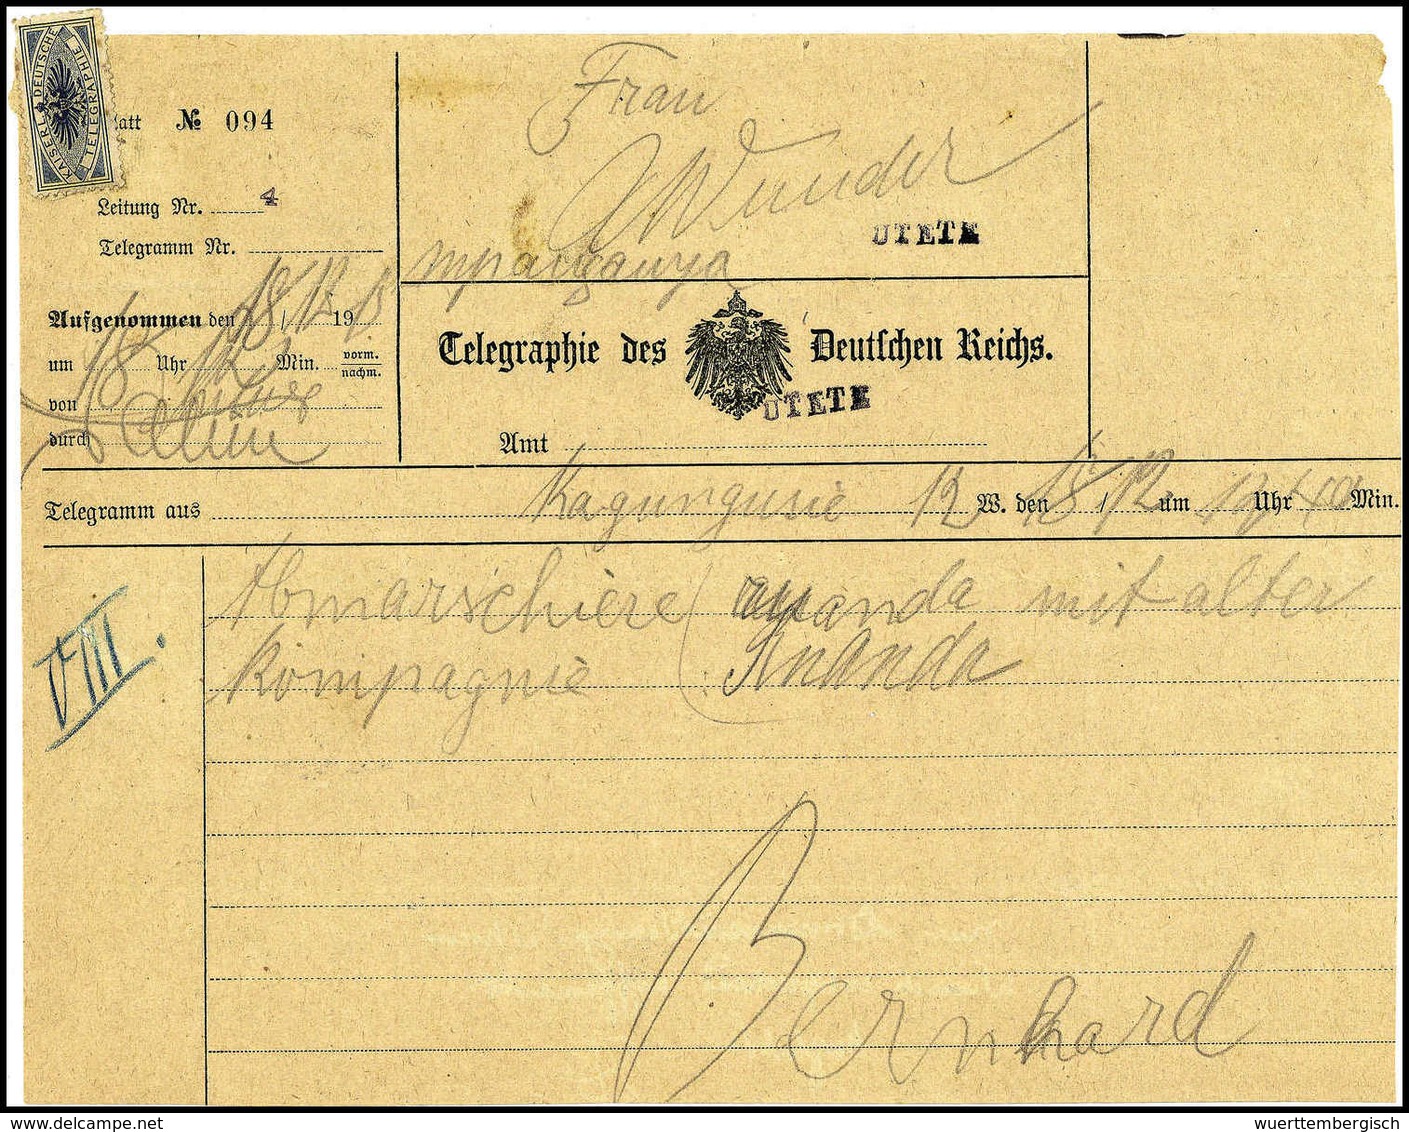 KAISERL. DEUTSCHE TELEGRAPHIE
latt № 094
Leitung Nr. 4
Telegramm Nr.
Aufgenommen den 18/12 19 15
um 18 Uhr Min. vorm. nachm.
von
durch
Frau
Wunder
UTETE
mpanganya
Telegraphie des Deutschen Reichs.
UTETE
Amt
Telegramm aus Kagungusie 12 W. den 18/12 um Uhr Min.
VIII.
Abmarschiere ruanda mit alter
Kompagnie Ruanda
Bernhard
wuerttembergisch